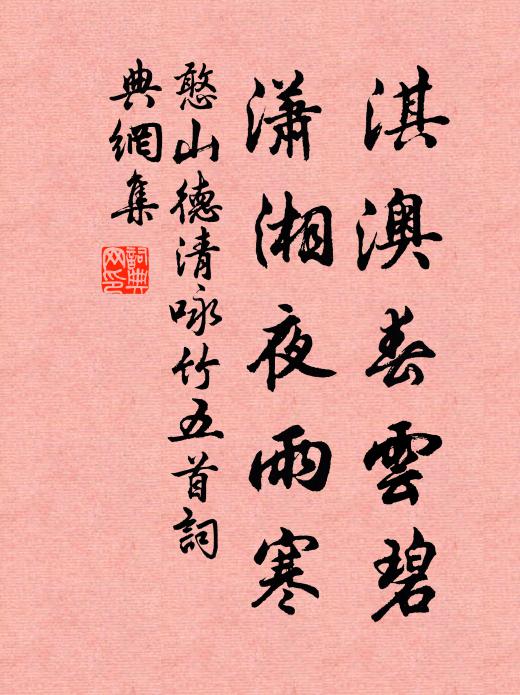 淇澳春雲碧
瀟湘夜雨寒
憨山德清咏竹五首詞
典網集
詞典網印